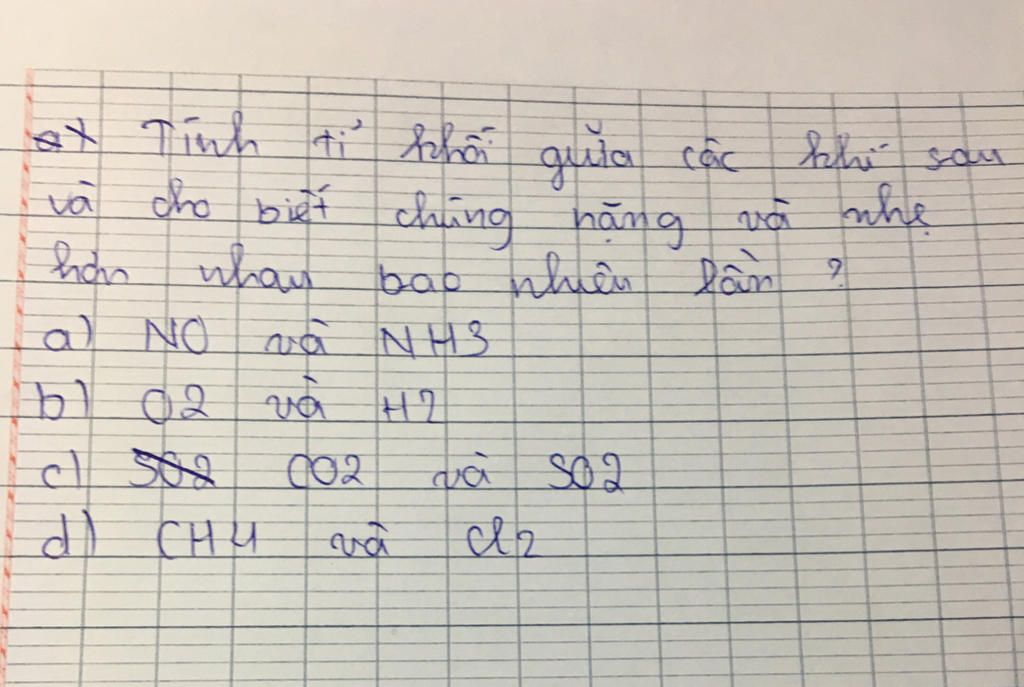 Tính tỉ khối giữa các khí sau
và cho biết chúng nặng và nhẹ
hơn nhau bao nhiêu lần ?
a) NO và NH3
b) O2 và H2
c) SO2 CO2 và SO2
d) CH4 và Cl2